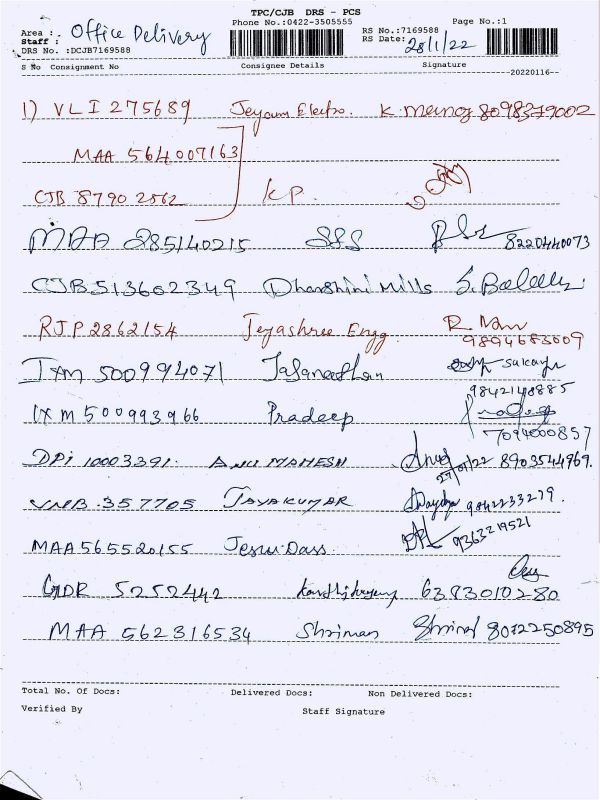 TPC/CJB DRS - PCS
Phone No.:0422-3505555 Page No.:1
Area : Office Delivery RS No.:7169588
Staff : RS Date: 28/1/22
DRS No. :DCJB7169588
S No Consignment No Consignee Details Signature
20220116
1) VLI 275689 Jeyam Electro. K. Manoj 8098379002
MAA 564007163
CJB 8790 2562 K.P.
MAA 285140215 SSS 8220440073
CJB 513602349 Dharshini Mills
RJP 2862154 Jeyashree Engg.
9894683009
IXM 500994071 Jafanathan
9842148885
IXM 500993966 Pradeep Pradeep
7094000857
DPI 10003391. ANU MAHESH 27/01/22 8903544969.
VNB. 357705 JAYAKUMAR 9842233279.
MAA 565520155 Jesu Dass 9363219521
GDR 5252442 6383010280
MAA 562316534 Shriman 8072250895
Total No. Of Docs: Delivered Docs: Non Delivered Docs:
Verified By Staff Signature